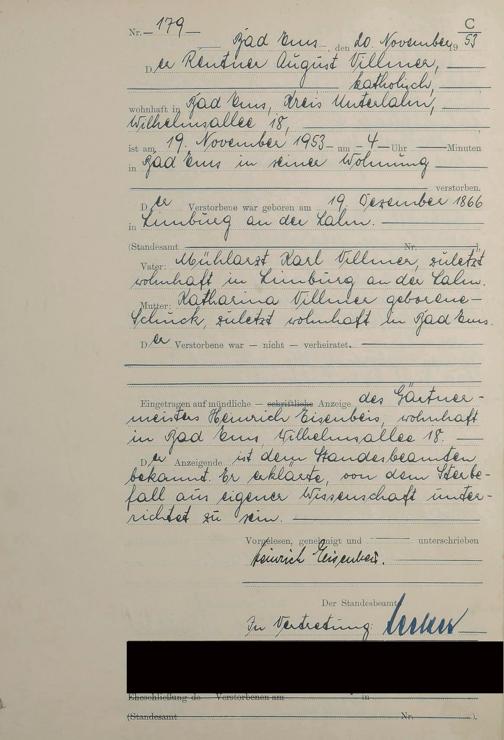 Nr. 179 C
Bad Ems, den 20. November 19 53
Der Rentner August Villmer,
katholisch,
wohnhaft in Bad Ems, Kreis Unterlahn,
Wilhelmsallee 18,
ist am 19. November 1953 um 4 Uhr Minuten
in Bad Ems in seiner Wohnung
verstorben.
Der Verstorbene war geboren am 19. Dezember 1866
in Limburg an der Lahn.
(Standesamt Nr. ).
Vater: Karl Villmer, zuletzt
wohnhaft in Limburg an der Lahn.
Mutter: Katharina Villmer geborene
Schuck, zuletzt wohnhaft in Bad Ems.
Der Verstorbene war — nicht — verheiratet.
Eingetragen auf mündliche — schriftliche Anzeige des Gärtner-
meisters Heinrich Eisenbeis, wohnhaft
in Bad Ems, Wilhelmsallee 18.
Der Anzeigende ist dem Standesbeamten
bekannt. Er erklärte, von dem Sterbe-
fall aus eigener Wissenschaft unter-
richtet zu sein.
Vorgelesen, genehmigt und unterschrieben
Heinrich Eisenbeis.
Der Standesbeamte
In Vertretung:
Eheschließung de Verstorbenen am in
(Standesamt Nr. ).